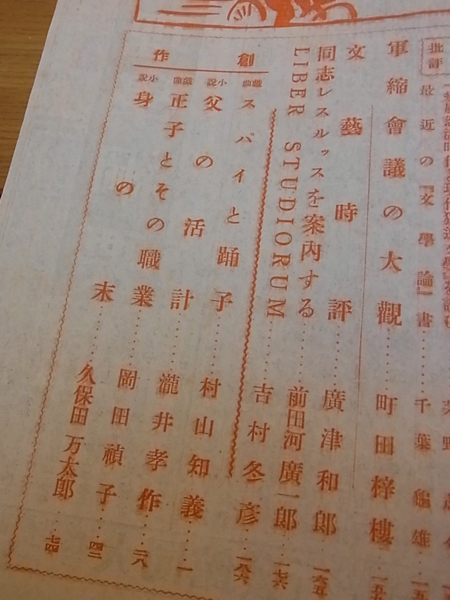 批評
最近の『文學論』書……千葉龜雄
軍縮會議の大觀……町田梓樓
文藝時評……廣津和郎
同志レスルッスを案内する……前田河廣一郎
LIBER STUDIORUM……吉村冬彦
創作
戯曲 スパイと踊子……村山知義 一
小說 父の活計……瀧井孝作
戯曲 正子とその職業……岡田禎子
小說 身の末……久保田万太郎